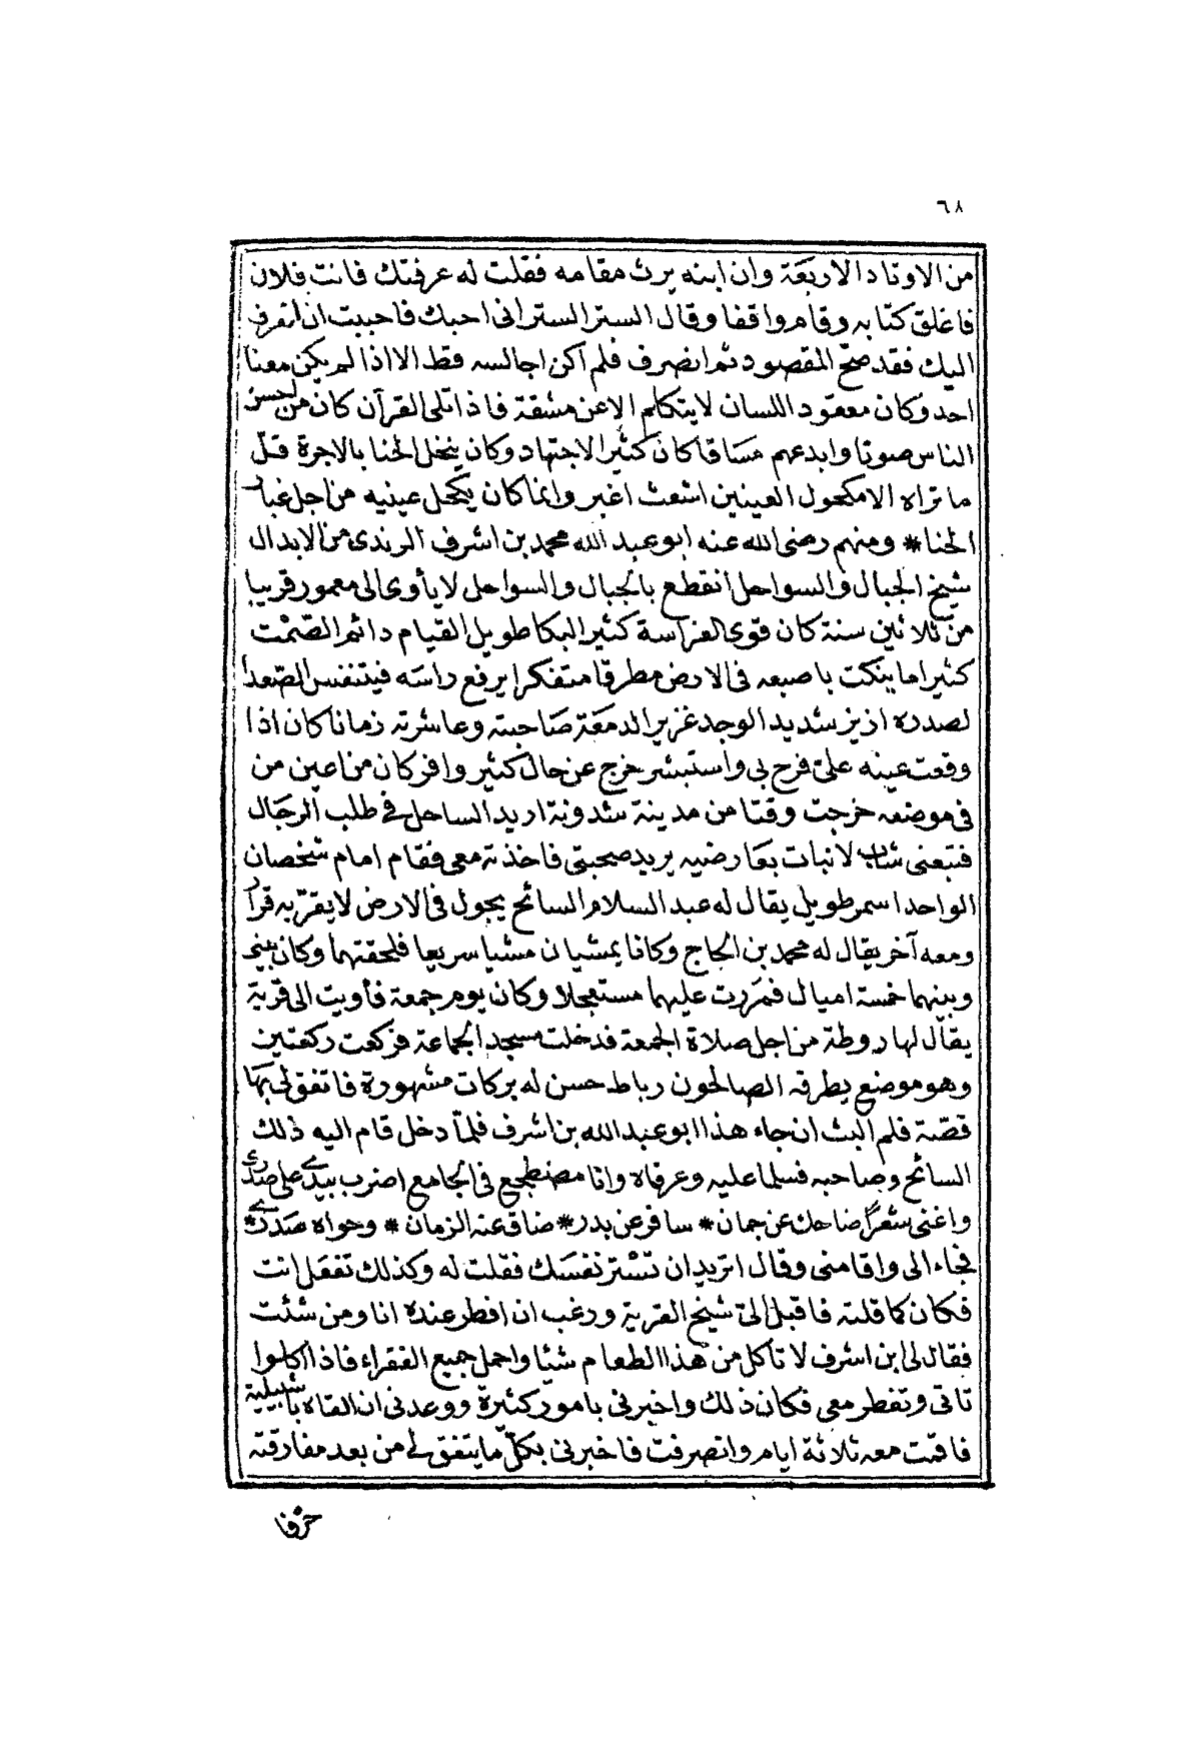 ٦٨
من الاوتاد الاربعة وان ابنه يرث مقامه فقلت له عرفتك فانت فلان
فاغلق كتابه وقام واقفا وقال الستر الستر انى احبك فاحببت ان اتعرف
اليك فقد صحّ المقصود ثم انصرف فلم اكن اجالسه قط الا اذا لم يكن معنا
احد وكان معقود اللسان لا يتكلم الا عن مشقة فاذا تلى القرآن كان من احسن
الناس صوتا وابدعهم مساقا كان كثير الاجتهاد وكان ينخل الحنا بالاجرة قلّ
ما تراه الا مكحول العينين اشعث اغبر وانما كان يكحل عينيه من اجل غبار
الحنا * ومنهم رضى الله عنه ابو عبد الله محمد بن اشرف الرندى من الابدال
شيخ الجبال والسواحل انقطع بالجبال والسواحل لا يأوى الى معمور قريبا
من ثلاثين سنة كان قوى الفراسة كثير البكا طويل القيام دائم الصّمْت
كثيرا ما ينكت باصبعه فى الارض مطرقا متفكرا يرفع راسه فيتنفس الصّعدا
لصدره ازيز شديد الوجد غزير الدمعة صاحبته وعاشرته زمانا كان اذا
وقعت عينه علىّ فرح بى واستبشر خرج عن حال كثير وافر كان من اعين من
فى موضعه خرجت وقتا من مدينة شدونة اريد الساحل فى طلب الرجال
فتبعنى شاب لا نبات بعارضيه يريد صحبتى فاخذته معى فقام امام شخصان
الواحد اسمر طويل يقال له عبد السلام السائح يجول فى الارض لا يقرّ به قرار
ومعه آخر يقال له محمد بن الحاج وكانا يمشيان مشيا سريعا فلحقتهما وكان بينى
وبينهما خمسة اميال فمررت عليهما مستعجلا وكان يوم جمعة فأويت الى قرية
يقال لها روطة من اجل صلاة الجمعة فدخلت مسجد الجماعة فركعت ركعتين
وهو موضع يطرقه الصالحون رباط حسن له بركات مشهورة فاتفق لى بها
قصّة فلم البث ان جاء هذا ابو عبد الله بن اشرف فلمّا دخل قام اليه ذلك
السائح وصاحبه فسلما عليه وعرفاه وانا مضطجع فى الجامع اضرب بيدى على صدرى
واغنى شعراً ضاحك عن جمان * سافر عن بدر * ضاق عنه الزمان * وحواه صدرى *
فجاء الى واقامنى وقال اتريد ان تستر نفسك فقلت له وكذلك تفعل انت
فكان كما قلته فاقبل الىّ شيخ القرية ورغب ان افطر عنده انا ومن شئت
فقال لى ابن اشرف لا تأكل من هذا الطعام شيئا واحمل جميع الفقراء فاذا اكلوا
تاتى وتفطر معى فكان ذلك واخبرنى بامور كثيرة ووعدنى ان القاه باشبيلية
فاقمت معه ثلاثة ايام وانصرفت فاخبرنى بكلّ ما يتفق لى من بعد مفارقته
حرفا